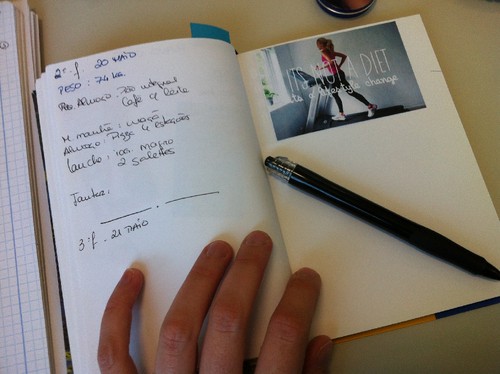 2ª f. 20 MAIO
PESO: 74 kg.
Peq. Almoço: Pão integral
Café c/ leite
M. manhã: maçã
Almoço: Pizza 4 estações
Lanche: iog. magro
2 galettes
Jantar:
3ª f. 21 MAIO
IT'S NOT A DIET
its a lifestyle change